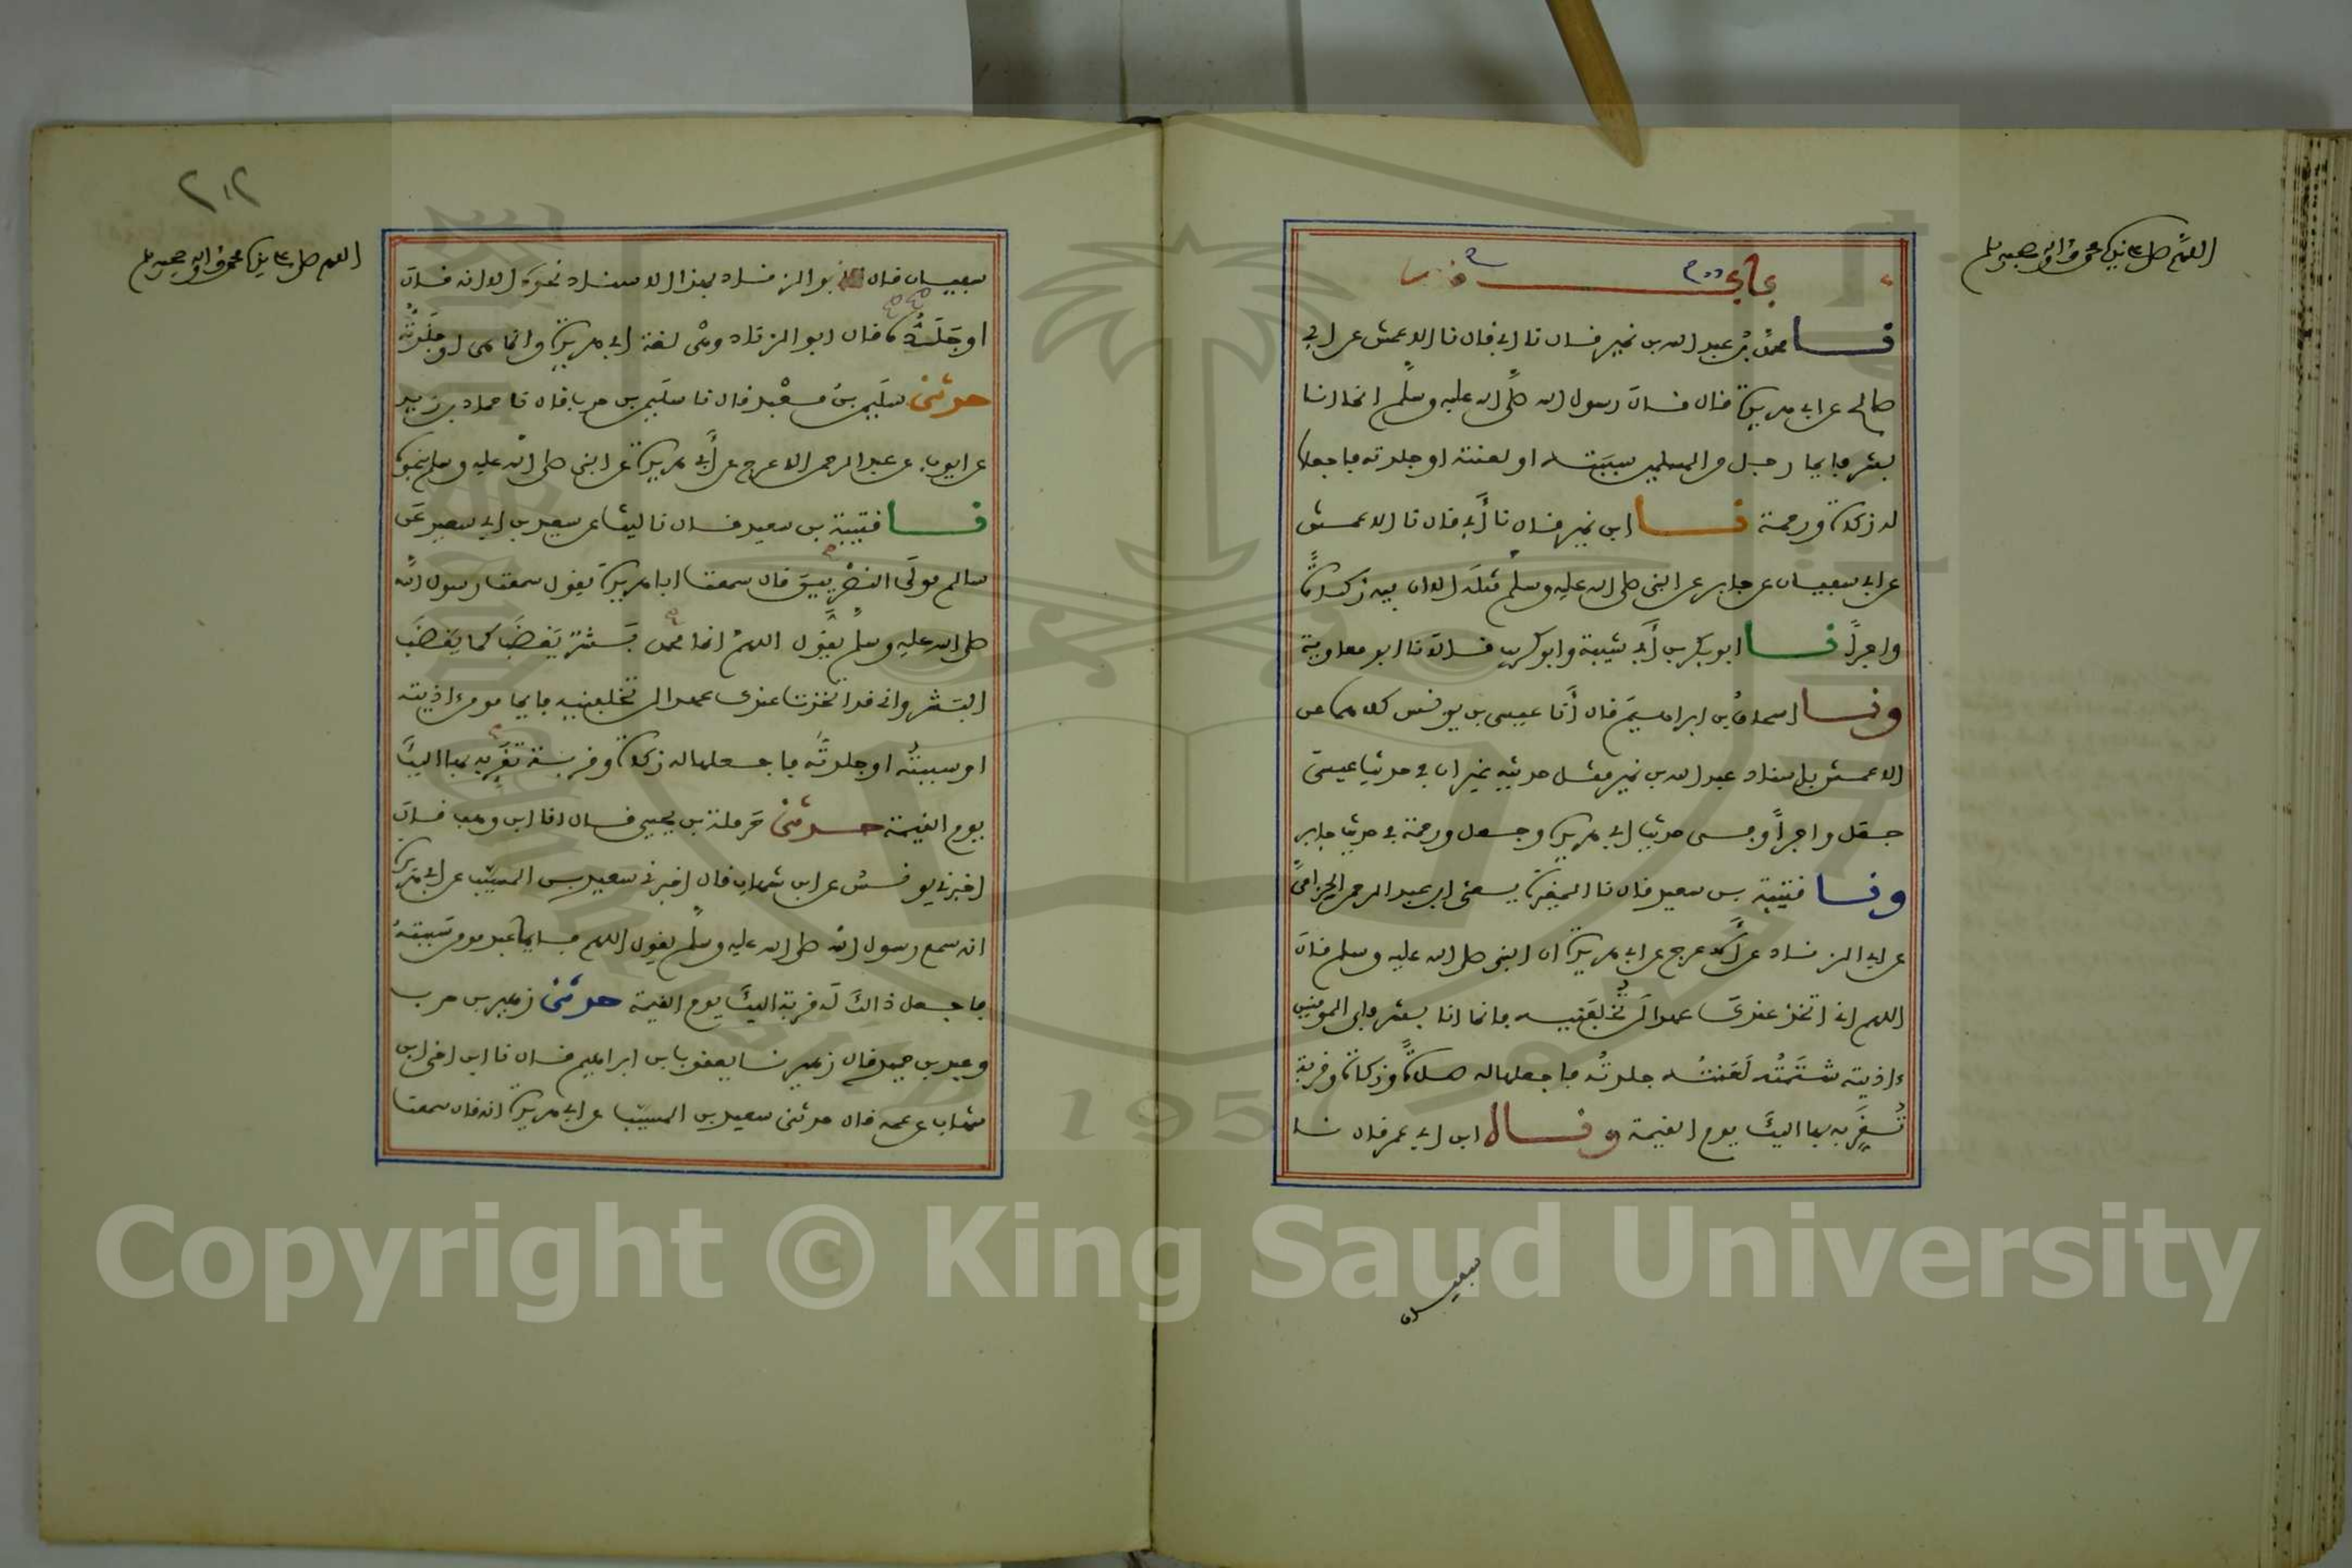 اللهم صل على نبيك محمد وآله وصحبه وسلم
باب منه
نا محمد بن عبد الله بن نمير قال نا ابي قال نا الاعمش عن ابي
صالح عن ابي هريرة قال قال رسول الله صلى الله عليه وسلم انما انا
بشر فايما رجل من المسلمين سببته او لعنته او جلدته فاجعلها
له زكاة ورحمة نا ابن نمير قال نا أبي قال نا الاعمش
عن ابي سفيان عن جابر عن النبي صلى الله عليه وسلم مثله الا ان فيه زكاةً
واجراً نا ابو بكر بن أبي شيبة وابو كريب قالا نا ابو معاوية
ونا اسحاق بن ابراهيم قال أنا عيسى بن يونس كلاهما عن
الاعمش باسناد عبد الله بن نمير مثل حديثه غير ان في حديث عيسى
جعل واجراً في حديث ابي هريرة وجعل ورحمة في حديث جابر
ونا قتيبة بن سعيد قال نا المغيرة يعني ابن عبد الرحمن الحزامي
عن ابي الزناد عن الأعرج عن ابي هريرة ان النبي صلى الله عليه وسلم قال
اللهم اني اتخذ عندك عهدا لن تخلفنيه فانما انا بشر فاي المومنين
ءاذيته شتمته لعنته جلدته فاجعلها له صلاةً وزكاة وقربة
تقربه بها اليك يوم القيمة وقال ابن ابي عمر قال نا
سفيان
٢١٢
اللهم صل على نبيك محمد وآله وصحبه وسلم
سفيان قال نا ابو الزناد بهذا الاسناد نحوه الا انه قال
او جلده قال ابو الزناد وهي لغة ابي هريرة وانما هي او جلدته
حدثني سليمن بن معبد قال نا سليمن بن حرب قال نا حماد بن زيد
عن ايوب عن عبد الرحمن الاعرج عن أبي هريرة عن النبي صلى الله عليه وسلم بنحوه
نا قتيبة بن سعيد قال نا ليث عن سعيد بن ابي سعيد عن
سالم مولى النصريين قال سمعت ابا هريرة يقول سمعت رسول الله
صلى الله عليه وسلم يقول اللهم انما محمد بشر يغضب كما يغضب
البشر واني قد اتخذت عندك عهدا لن تخلفنيه فايما مومن ءاذيته
او سببته او جلدته فاجعلها له زكاة وقربة تقربه بها اليك
يوم القيمة حدثني حرملة بن يحيى قال انا ابن وهب قال
اخبرني يونس عن ابن شهاب قال اخبرني سعيد بن المسيب عن ابي هريرة
انه سمع رسول الله صلى الله عليه وسلم يقول اللهم فايما عبد مومن سببته
فاجعل ذالك له قربة اليك يوم القيمة حدثني زهير بن حرب
وعبد بن حميد قال زهير نا يعقوب بن ابراهيم قال نا ابن اخي ابن
شهاب عن عمه قال حدثني سعيد بن المسيب عن ابي هريرة انه قال سمعت
1957
Copyright © King Saud University